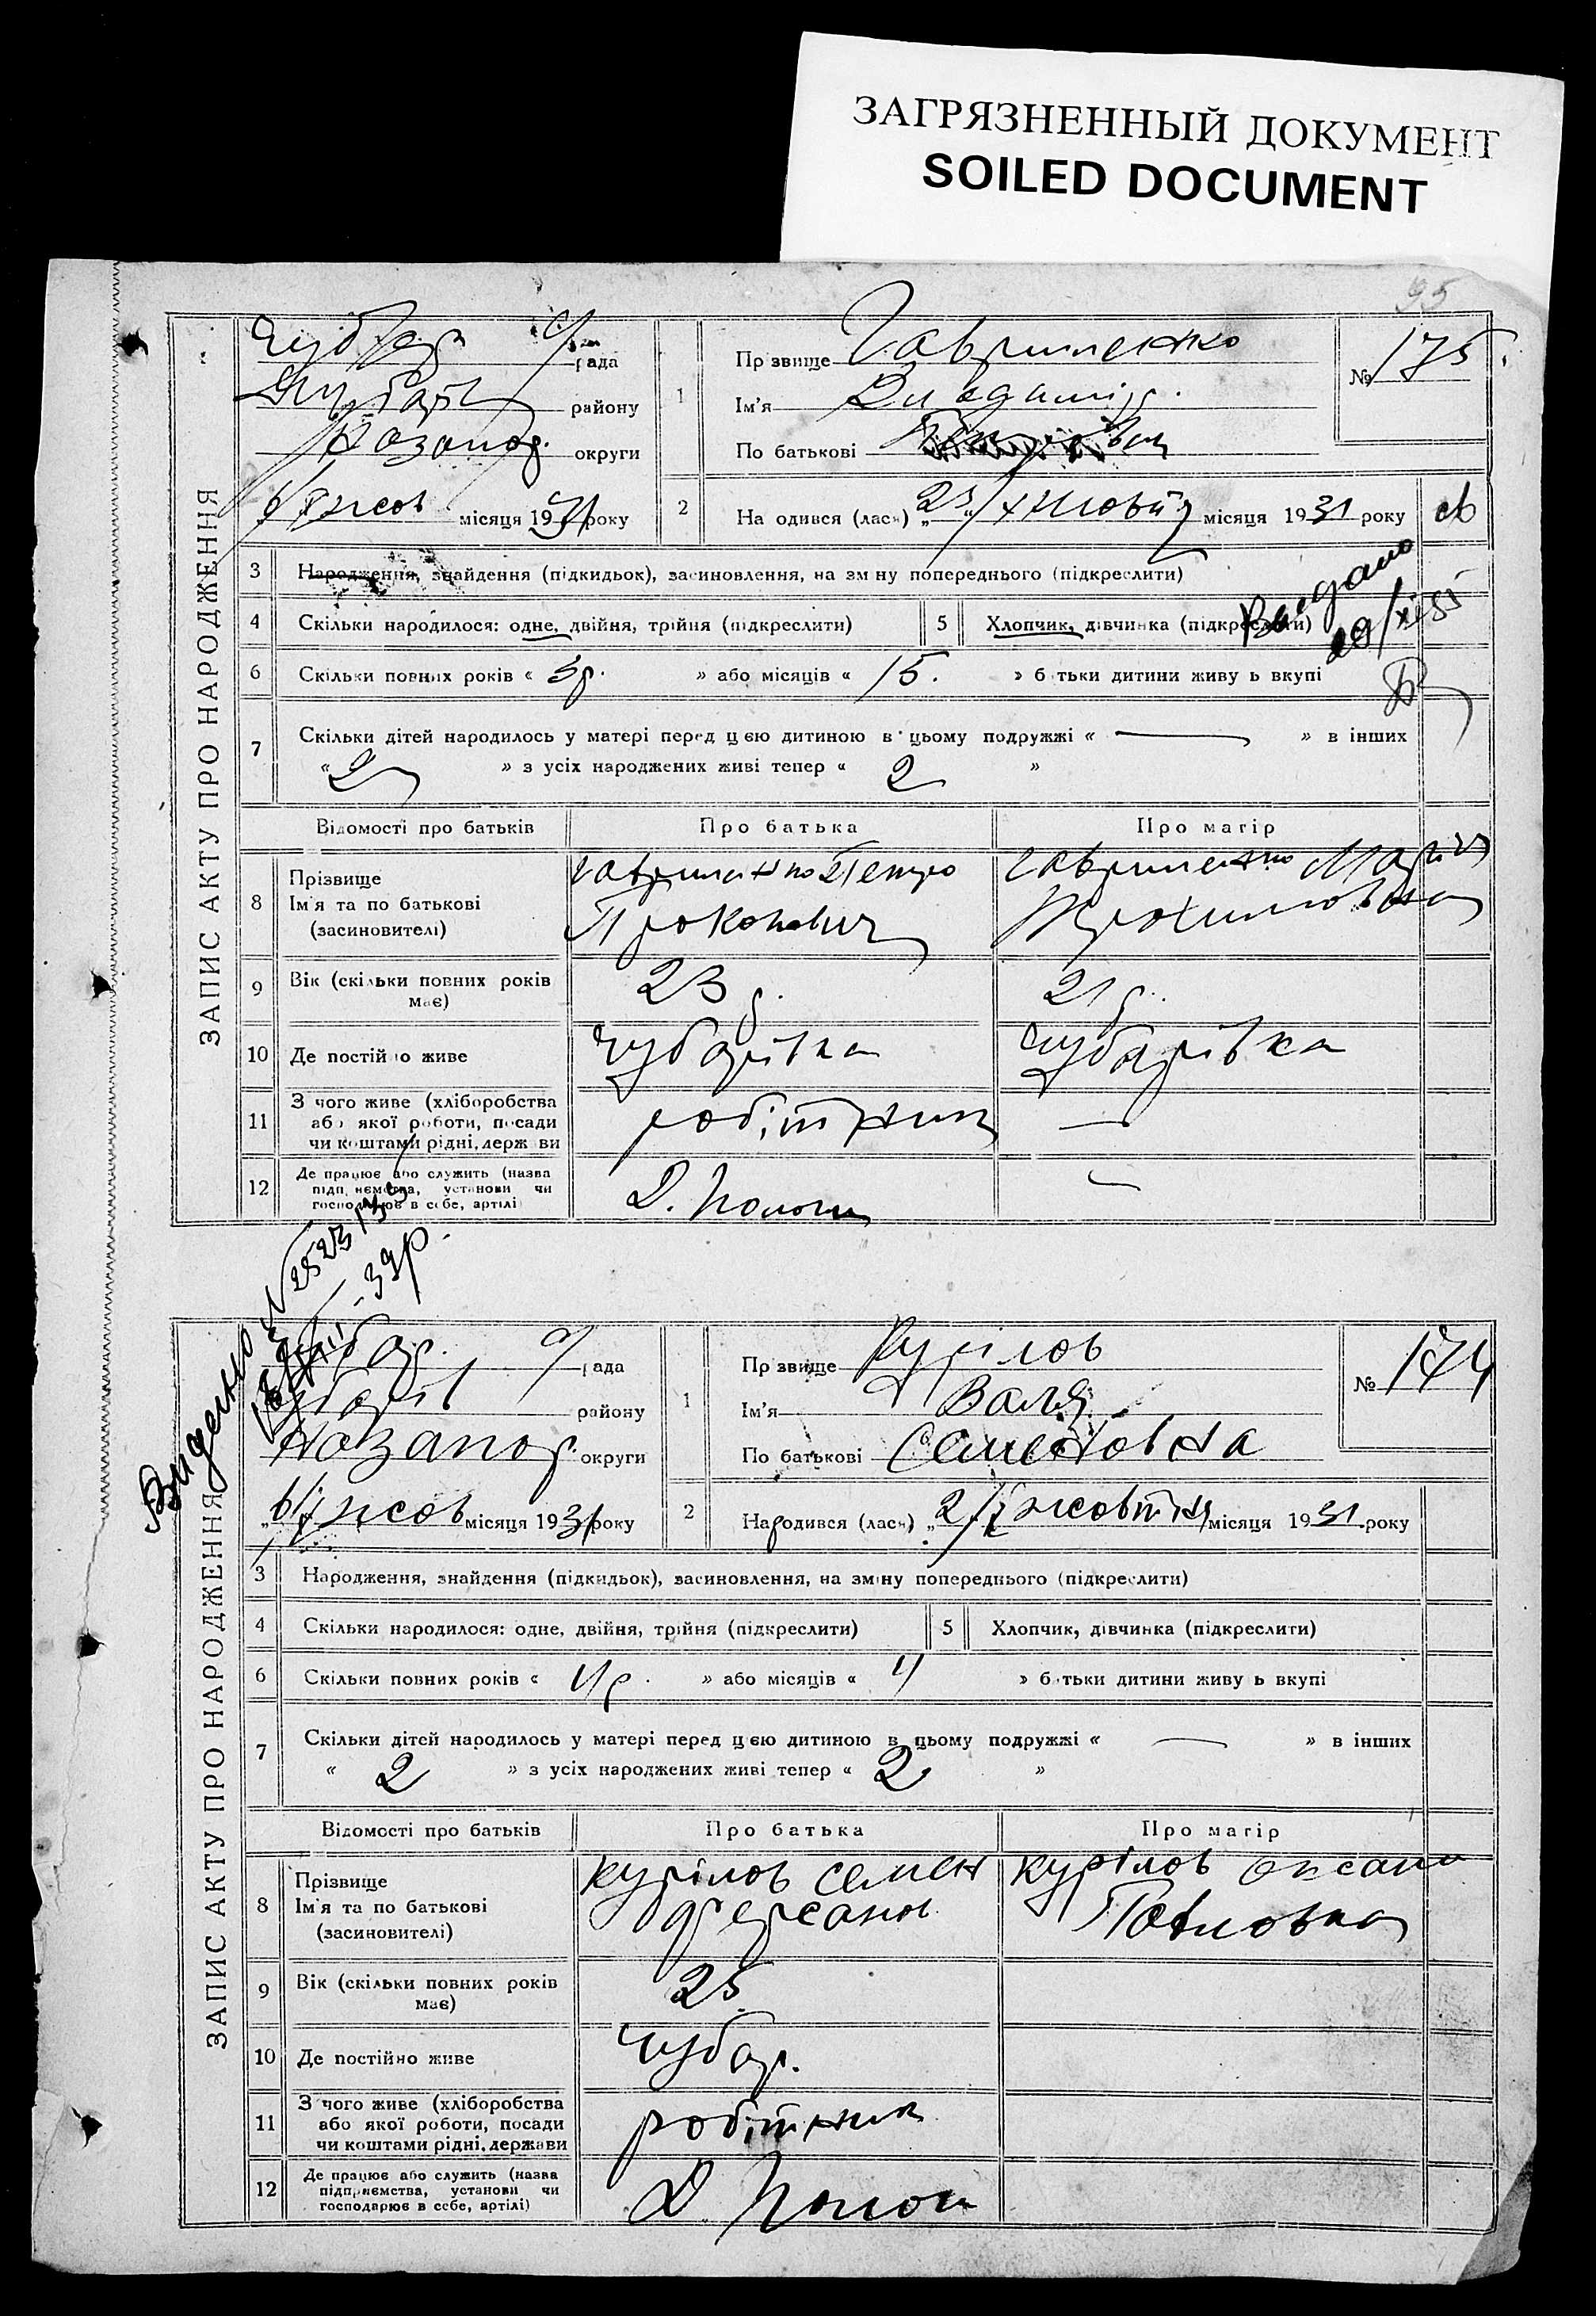 ЗАГРЯЗНЕННЫЙ ДОКУМЕНТ
SOILED DOCUMENT
95
ЗАПИС АКТУ ПРО НАРОДЖЕННЯ
рада
району
округи
місяця 1931 року
1
Прзвище Гавриленко
Ім'я Владимір.
По батькові
№ 175
2
На одився (лась) „23/X жовтня місяця 1931 року
3 Народження, знайдення (підкидьок), засиновлення, на зміну попереднього (підкреслити)
4 Скільки народилося: одне, двійня, трійня (підкреслити)
5 Хлопчик, дівчинка (підкреслити)
Видано
29/XI 31
6 Скільки повних років « 3р. » або місяців « 15. » батьки дитини живуть вкупі
7 Скільки дітей народилось у матері перед цією дитиною в цьому подружжі « — » в інших
« 2 » з усіх народжених живі тепер « 2 »
Відомості про батьків
Про батька
Про матір
8 Прізвище
Ім'я та по батькові
(засиновителі)
Гавриленко Петро
Прокопович
Гавриленко Марія
Трохимовна
9 Вік (скільки повних років
має)
23 р.
21 р.
10 Де постійно живе
Чубарівка
Чубарівка
11 З чого живе (хліборобства
або якої роботи, посади
чи коштами рідні, держави
робітник
—
12 Де працює або служить (назва
підприємства, установи чи
господарює в себе, артілі)
Д. Пологи
—
Видано
ЗАПИС АКТУ ПРО НАРОДЖЕННЯ
Чубар. с/рада
Чубарів району
округи
місяця 1931 року
1
Прзвище Курілов
Ім'я Валя
По батькові Семеновна
№ 174
2
Народився (лась) „2/X жовтня місяця 1931 року
3 Народження, знайдення (підкидьок), засиновлення, на зміну попереднього (підкреслити)
4 Скільки народилося: одне, двійня, трійня (підкреслити)
5 Хлопчик, дівчинка (підкреслити)
6 Скільки повних років « 4р. » або місяців « 4 » батьки дитини живуть вкупі
7 Скільки дітей народилось у матері перед цією дитиною в цьому подружжі « — » в інших
« 2 » з усіх народжених живі тепер « 2 »
Відомості про батьків
Про батька
Про матір
8 Прізвище
Ім'я та по батькові
(засиновителі)
Курілов Семен
Курілов Оксана
Павловна
9 Вік (скільки повних років
має)
25
10 Де постійно живе
Чубар.
11 З чого живе (хліборобства
або якої роботи, посади
чи коштами рідні, держави
робітник
12 Де працює або служить (назва
підприємства, установи чи
господарює в себе, артілі)
Д. Пологи